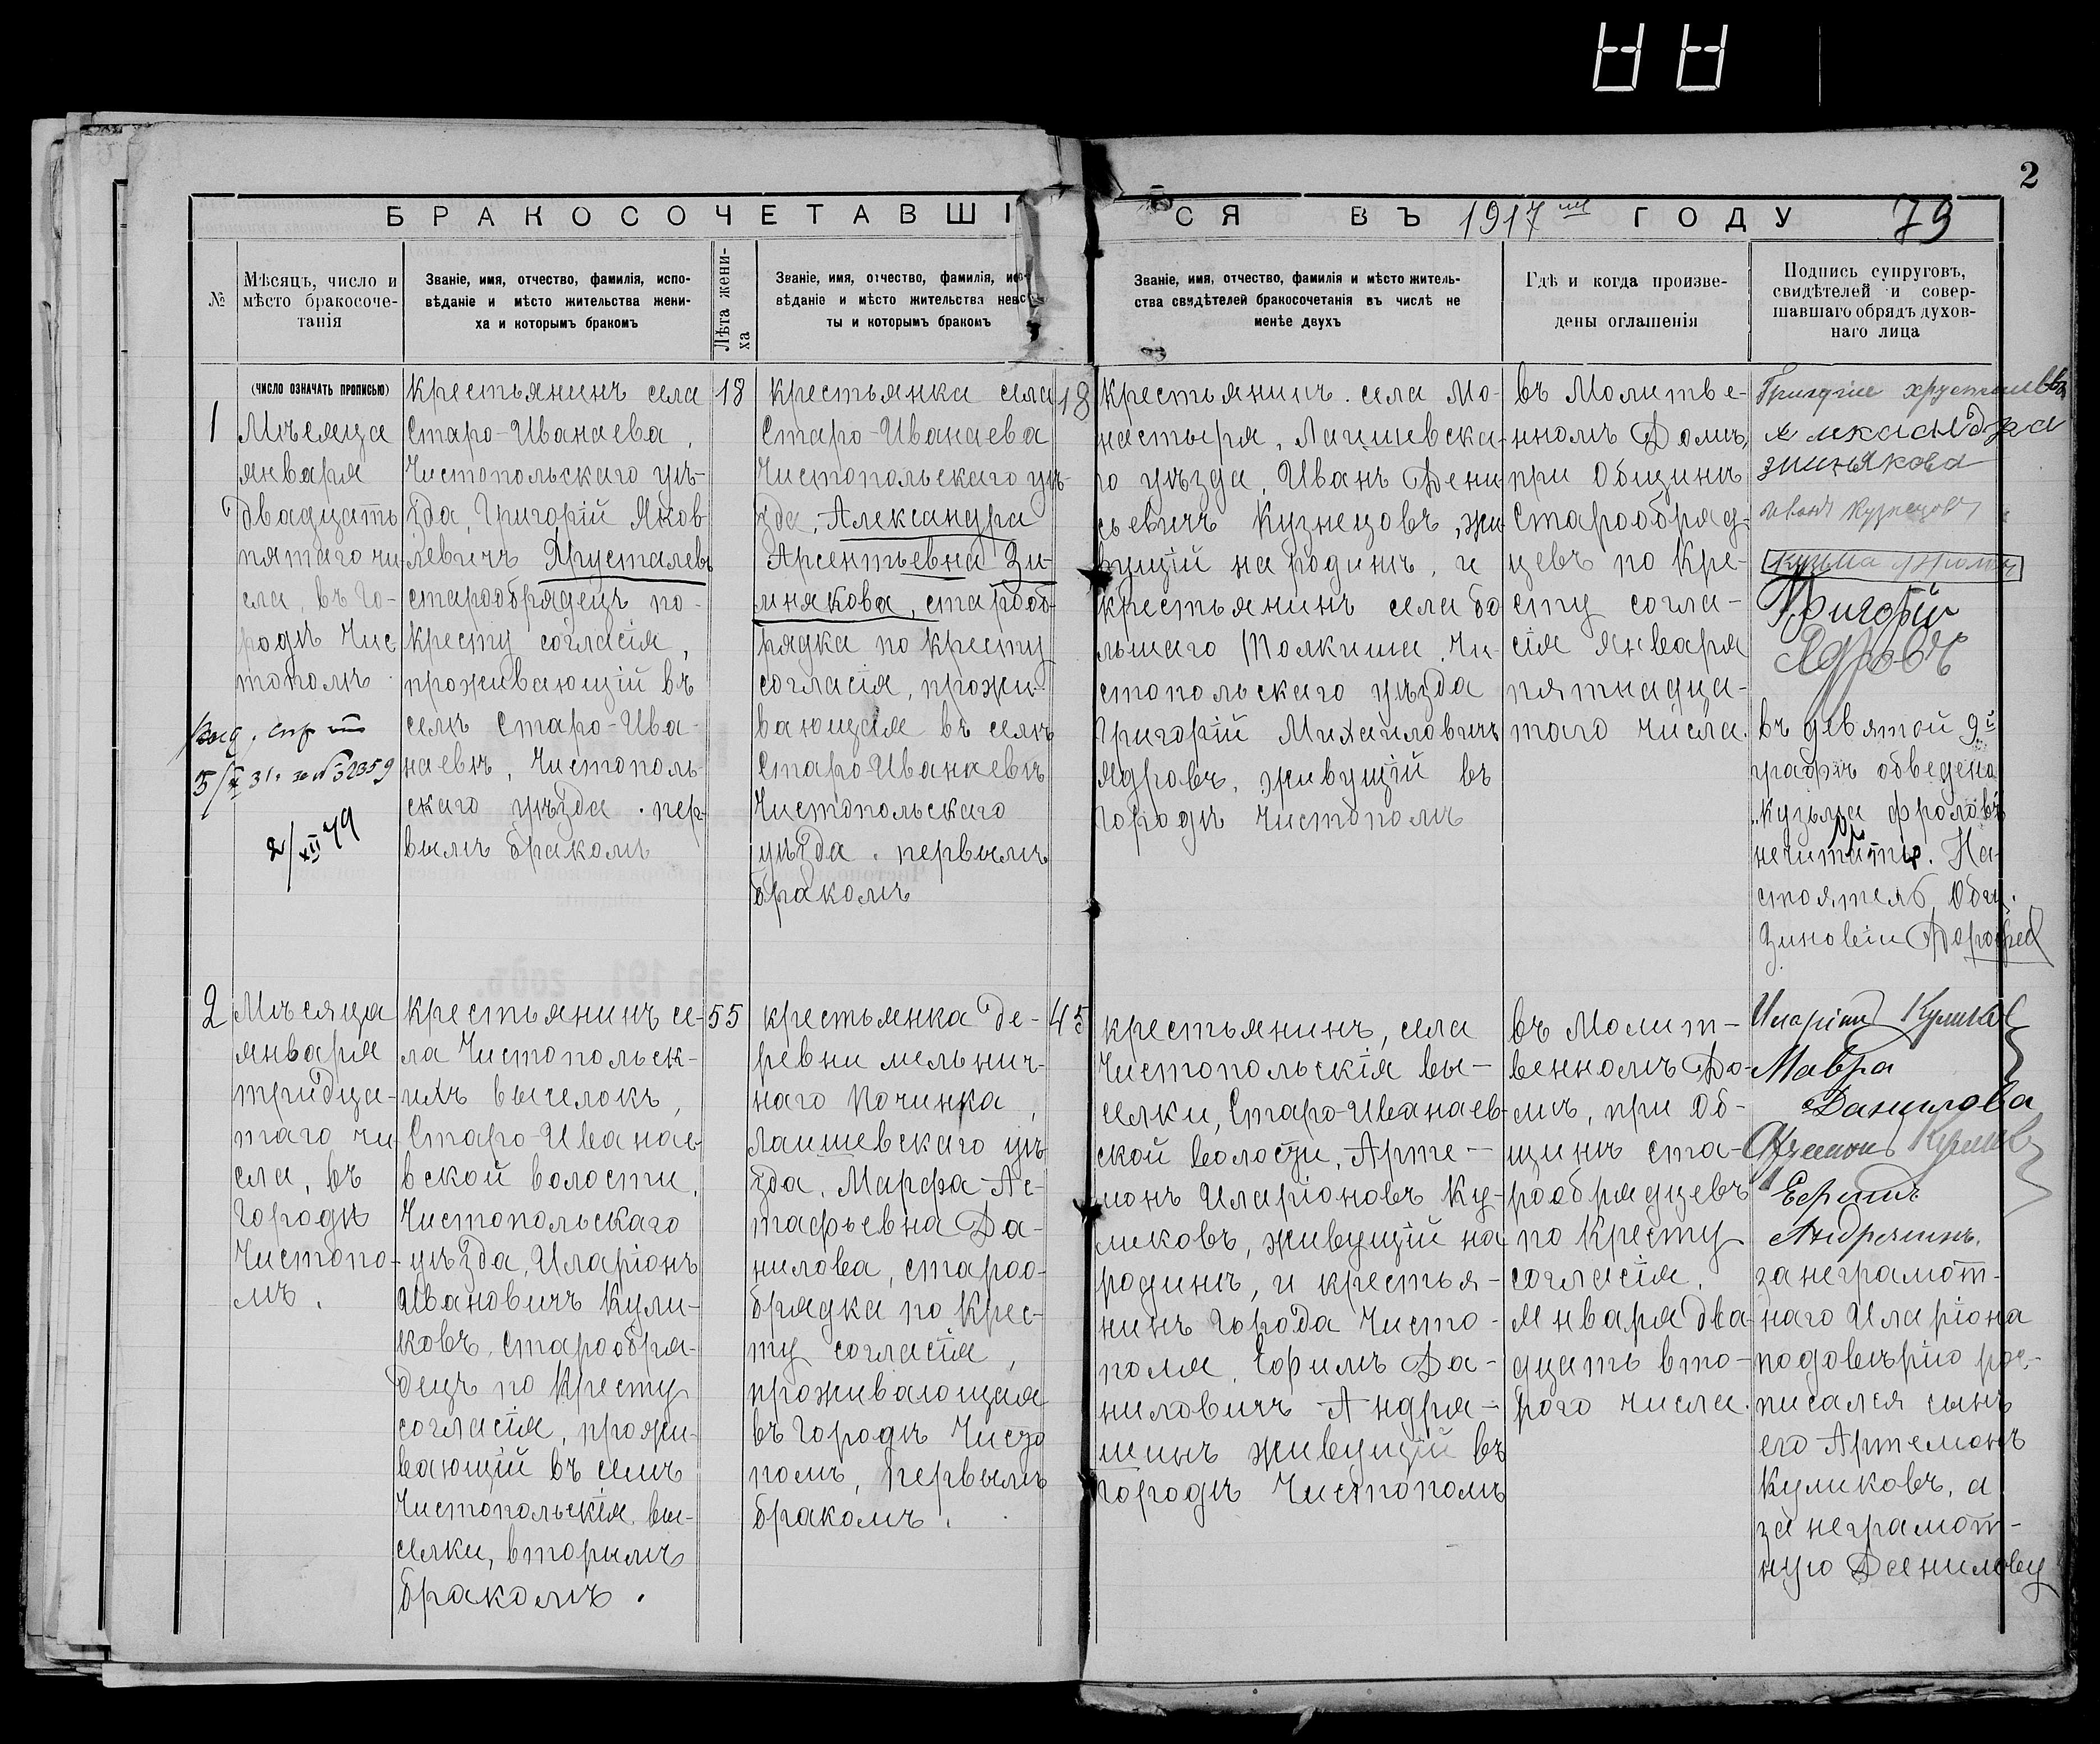 2
БРАКОСОЧЕТАВШІ
СЯ ВЪ 1917 ГОДУ
79
№
Мѣсяцъ, число и
мѣсто бракосоче-
танія
Званіе, имя, отчество, фамилія, испо-
вѣданіе и мѣсто жительства жени-
ха и которымъ бракомъ
Лѣта жени-
ха
Званіе, имя, отчество, фамилія, испо-
вѣданіе и мѣсто жительства невѣс-
ты и которымъ бракомъ
Званіе, имя, отчество, фамилія и мѣсто житель-
ства свидѣтелей бракосочетанія въ числѣ не
менѣе двухъ
Гдѣ и когда произве-
дены оглашенія
Подпись супруговъ,
свидѣтелей и совер-
шавшаго обрядъ духов-
наго лица
(ЧИСЛО ОЗНАЧАТЬ ПРОПИСЬЮ)
1
Мѣсяца
января
двадцать
пятаго чи-
сла, въ Го-
родѣ Чис-
тополѣ
5/X 31г. за № 32359
2/XII 49
крестьянинъ села
Старо-Иванаева,
Чистопольскаго уѣ-
зда, Григорій Яков
левичъ Хрусталевъ
старообрядецъ по-
кресту согласія,
проживающій въ
селѣ Старо-Ива-
наевѣ, Чистополь-
скаго уѣзда. пер-
вымъ бракомъ
18
крестьянка села
Старо-Иванаева
Чистопольскаго уѣ-
зда, Александра
Арсентьевна Зи-
мнякова, старооб-
рядка по кресту
согласія, прожи-
вающая въ селѣ
Старо-Иванаевѣ
Чистопольскаго
уѣзда. первымъ
бракомъ
18
крестьянинъ. села Мо-
настыря, Лаишевска-
го уѣзда, Иванъ Дени-
сьевичъ Кузнецовъ, жи
вущій на родинѣ, и
крестьянинъ села бо
льшаго Толкиша, Чи-
стопольскаго уѣзда
Григорій Михаиловичъ
Ядровъ, живущій въ
городѣ Чистополѣ
въ Молитве-
нномъ Домѣ,
при Общинѣ
Старообряд-
цевъ по кре-
сту согла-
сія Января
пятнадца-
таго числа.
Григорій хрусталевъ
Александра
зимнякова
иванъ Кузнецовъ
Кузьма Фролов
Григорій
Ядровъ
въ девятой 9й
графѣ обведено
„кузьма фроловъ
нечитать. На-
стоятель Общ.
Зиновій Дорофеев
2
Мѣсяца
января
тридца-
таго чи-
сла, въ
Городѣ
Чистопо-
лѣ.
крестьянинъ се-
ла Чистопольск-
ихъ выселокъ,
Старо-Иванае-
вской волости,
Чистопольскаго
уѣзда, Иларіонъ
Ивановичъ Кули-
ковъ, старообря-
децъ по Кресту
согласія, прожи-
вающій въ селѣ
Чистопольскія вы-
селки, вторымъ
бракомъ.
55
крестьянка де-
ревни мельнич-
наго Починка,
Лаишевскаго уѣ
зда, Марфа Ас-
тафьевна Да-
нилова, староо-
брядка по Крес-
ту согласія,
проживающая
въ Городѣ Чисто
полѣ, первымъ
бракомъ.
45
крестьянинъ, села
Чистопольскія вы-
селки, Старо-Иванаев-
ской волости, Арте-
монъ Иларіоновъ Ку-
ликовъ, живущій на
родинѣ, и крестья-
нинъ Города Чисто-
поля, Ефимъ Да-
ниловичъ Андря-
шинъ живущій въ
городѣ Чистополѣ
въ Молит-
венномъ До-
мѣ, при Об-
щинѣ ста-
рообрядцевъ
по Кресту
согласія,
Января два-
дцать вто-
рого числа.
Иларіонъ Куликов
Мавра
Данилова
Артемонъ Куликовъ
Ефимъ
Андряшинъ.
за неграмот-
наго Иларіона
подовѣрію рос-
писался сынъ
его Артемонъ
Куликовъ, а
за неграмот-
ную Данилову